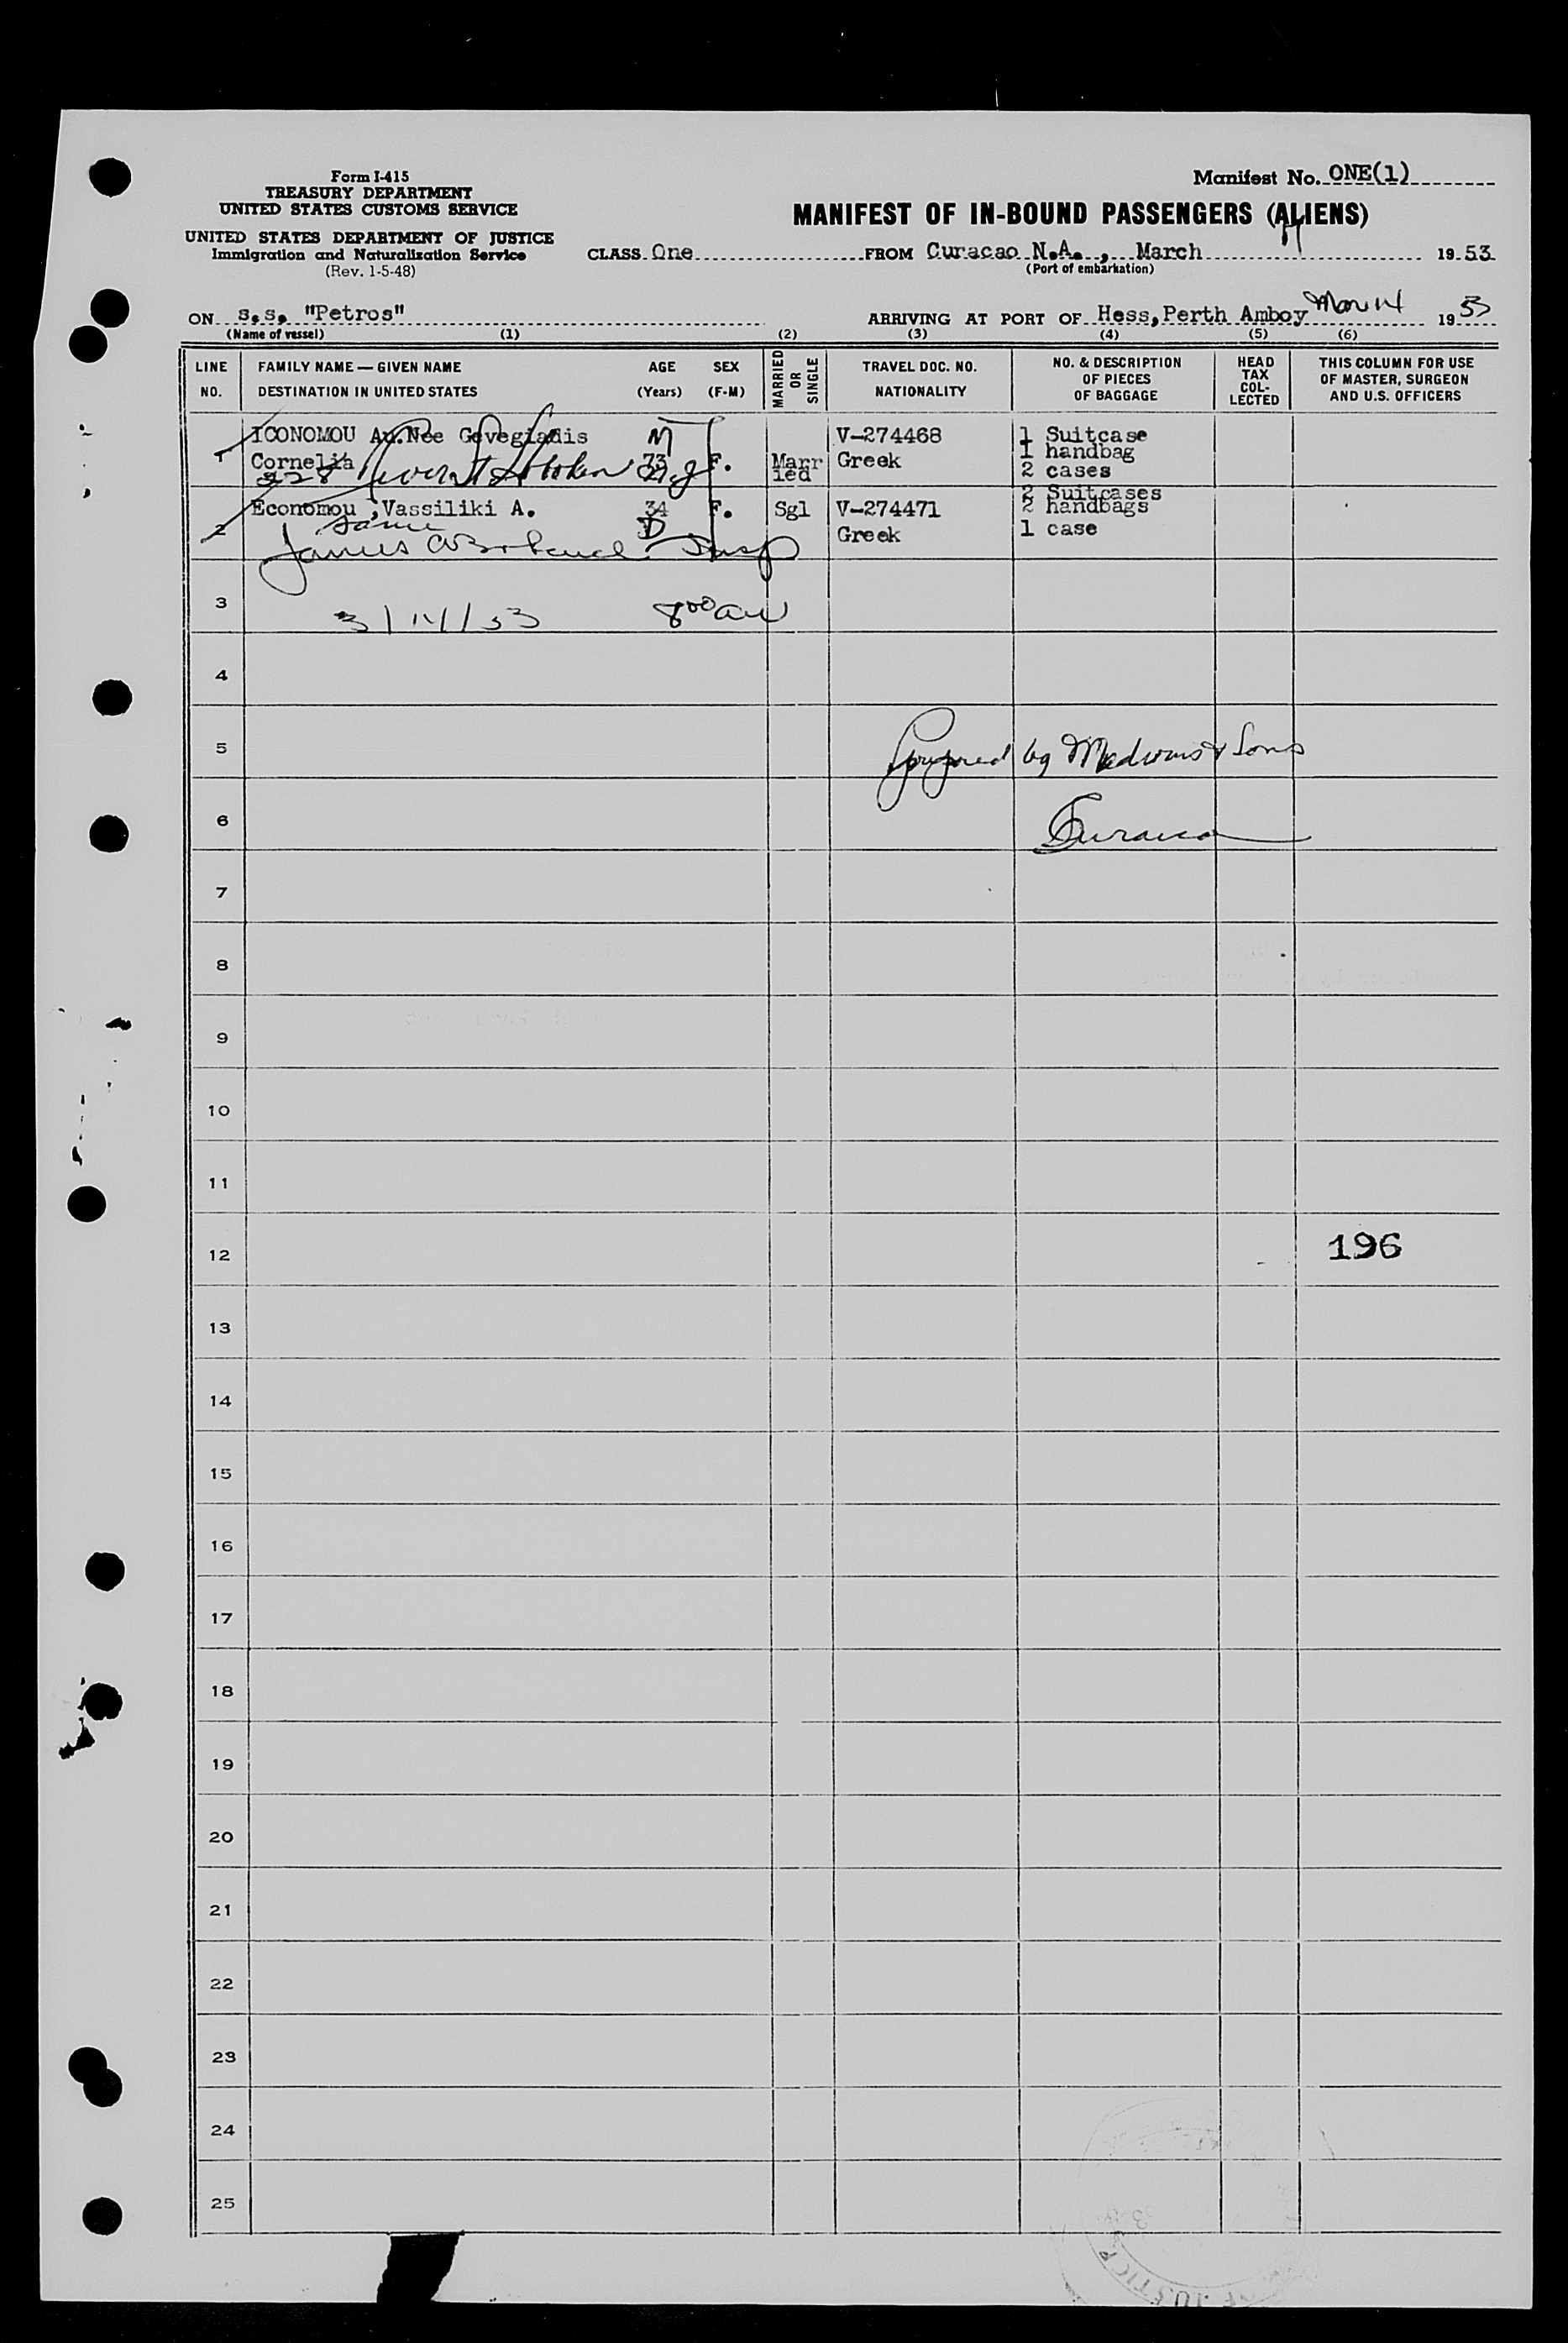 Form I-415
TREASURY DEPARTMENT
UNITED STATES CUSTOMS SERVICE
UNITED STATES DEPARTMENT OF JUSTICE
Immigration and Naturalization Service
(Rev. 1-5-48)
Manifest No. ONE(1)
MANIFEST OF IN-BOUND PASSENGERS (ALIENS)
CLASS One FROM Curacao N.A., March 1953
(Port of embarkation)
ON s.s. "Petros" ARRIVING AT PORT OF Hess, Perth Amboy Mar 14 1953
(Name of vessel) (1) (2) (3) (4) (5) (6)
LINE NO.
FAMILY NAME — GIVEN NAME
DESTINATION IN UNITED STATES
AGE (Years)
SEX (F-M)
MARRIED OR SINGLE
TRAVEL DOC. NO.
NATIONALITY
NO. & DESCRIPTION OF PIECES OF BAGGAGE
HEAD TAX COL-LECTED
THIS COLUMN FOR USE OF MASTER, SURGEON AND U.S. OFFICERS
1 ICONOMOU Au.Nee Gevegiadis M V-274468 1 Suitcase
1 handbag
Cornelia 73 F. Married Greek 2 cases
228 River St Hoboken NJ
2 Economou ,Vassiliki A. 34 F. Sgl V-274471 2 Suitcases
2 handbags
same D Greek 1 case
James Insp
3 3/14/53 8 00 am
4
5 prepared by & Sons
6 Curacao
7
8
9
10
11
12 196
13
14
15
16
17
18
19
20
21
22
23
24
25
OF JUSTICE